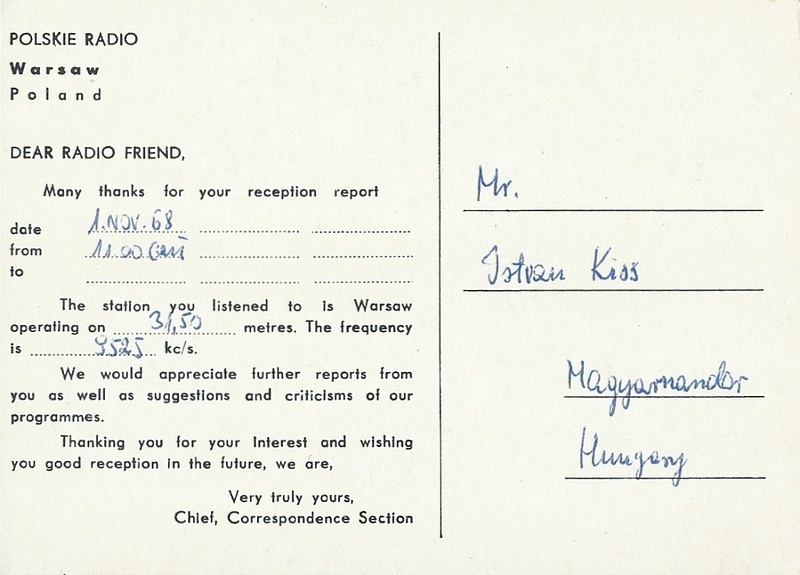 POLSKIE RADIO
Warsaw
Poland
DEAR RADIO FRIEND,
Many thanks for your reception report
date 1. NOV. 68
from 11.00 GMT
to
The station you listened to is Warsaw
operating on 31,50 metres. The frequency
is 9525 kc/s.
We would appreciate further reports from
you as well as suggestions and criticisms of our
programmes.
Thanking you for your interest and wishing
you good reception in the future, we are,
Very truly yours,
Chief, Correspondence Section
Mr.
Istvan Kiss
Magyarnandor
Hungary